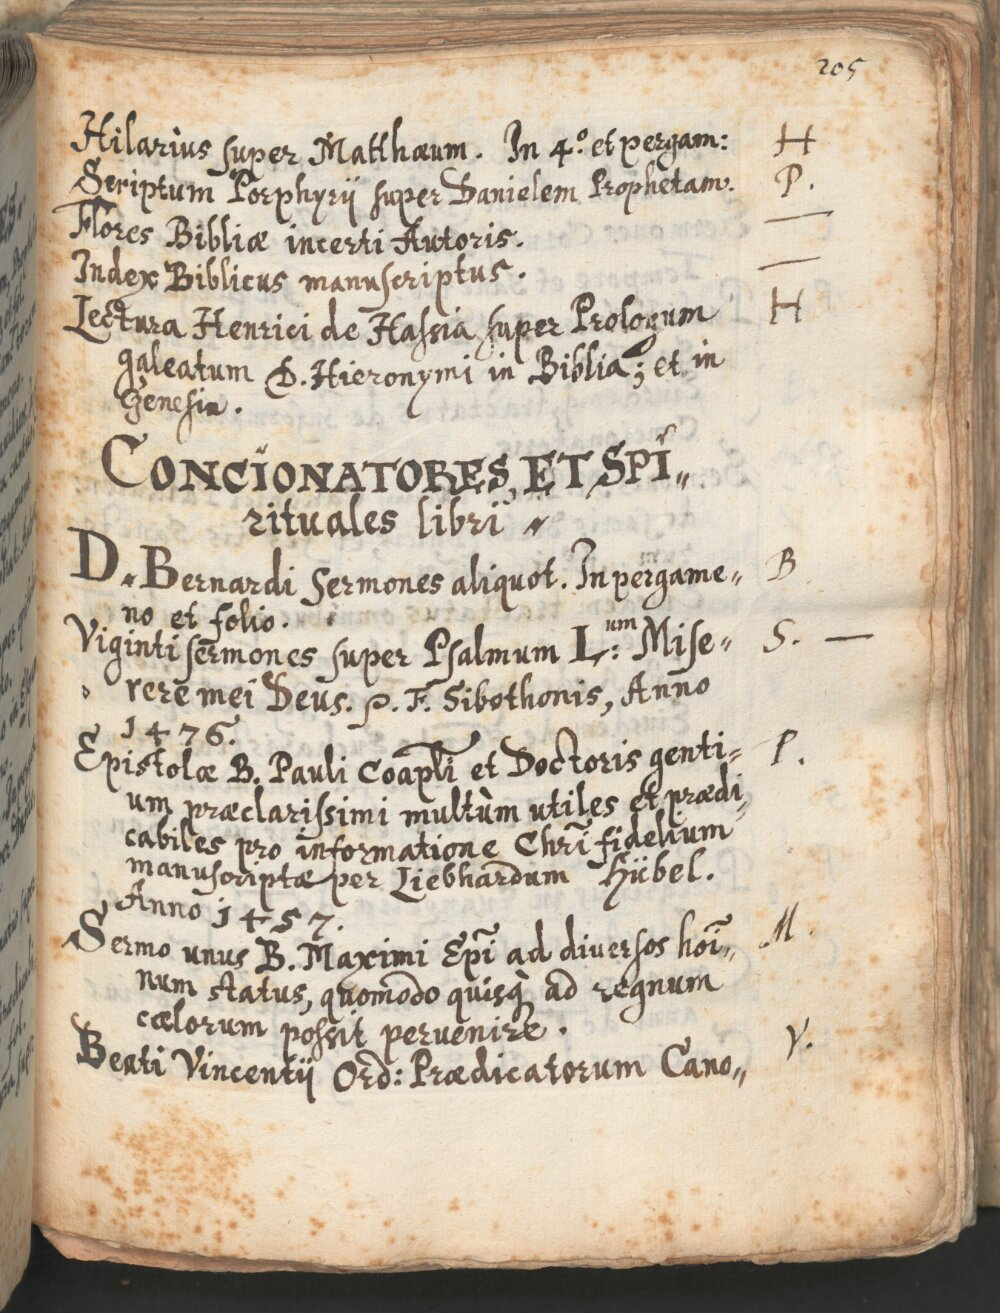 205
Hilarius super Matthæum. In 4.º et pergam: H
Scriptum Porphyrij super Danielem Prophetam. P.
Flores Bibliæ incerti Autoris. —
Index Biblicus manuscriptus. —
Lectura Henrici de Hassia super Prologum H
galeatum D. Hieronymi in Biblia; et in
Genesin.
CONCIONATORES, ET SPI„
rituales libri „
D. Bernardi Sermones aliquot. In pergame„ B
no et folio.
Viginti sermones super Psalmum L:um Mise„ S. —
rere mei Deus. P. F. Sibothonis, Anno
1476.
Epistolæ B. Pauli Coapli et Doctoris genti„ P.
um præclarissimi multùm utiles et prædi„
cabiles pro informatione Chri fidelium
manuscriptæ per Liebhardum Hübel.
Anno 1457.
Sermo unus B. Maximi Epi ad diversos hoi„ M.
num status, quomodo quisq ad regnum
cælorum possit pervenire.
Beati Vincentij Ord: Prædicatorum Cano„ V.